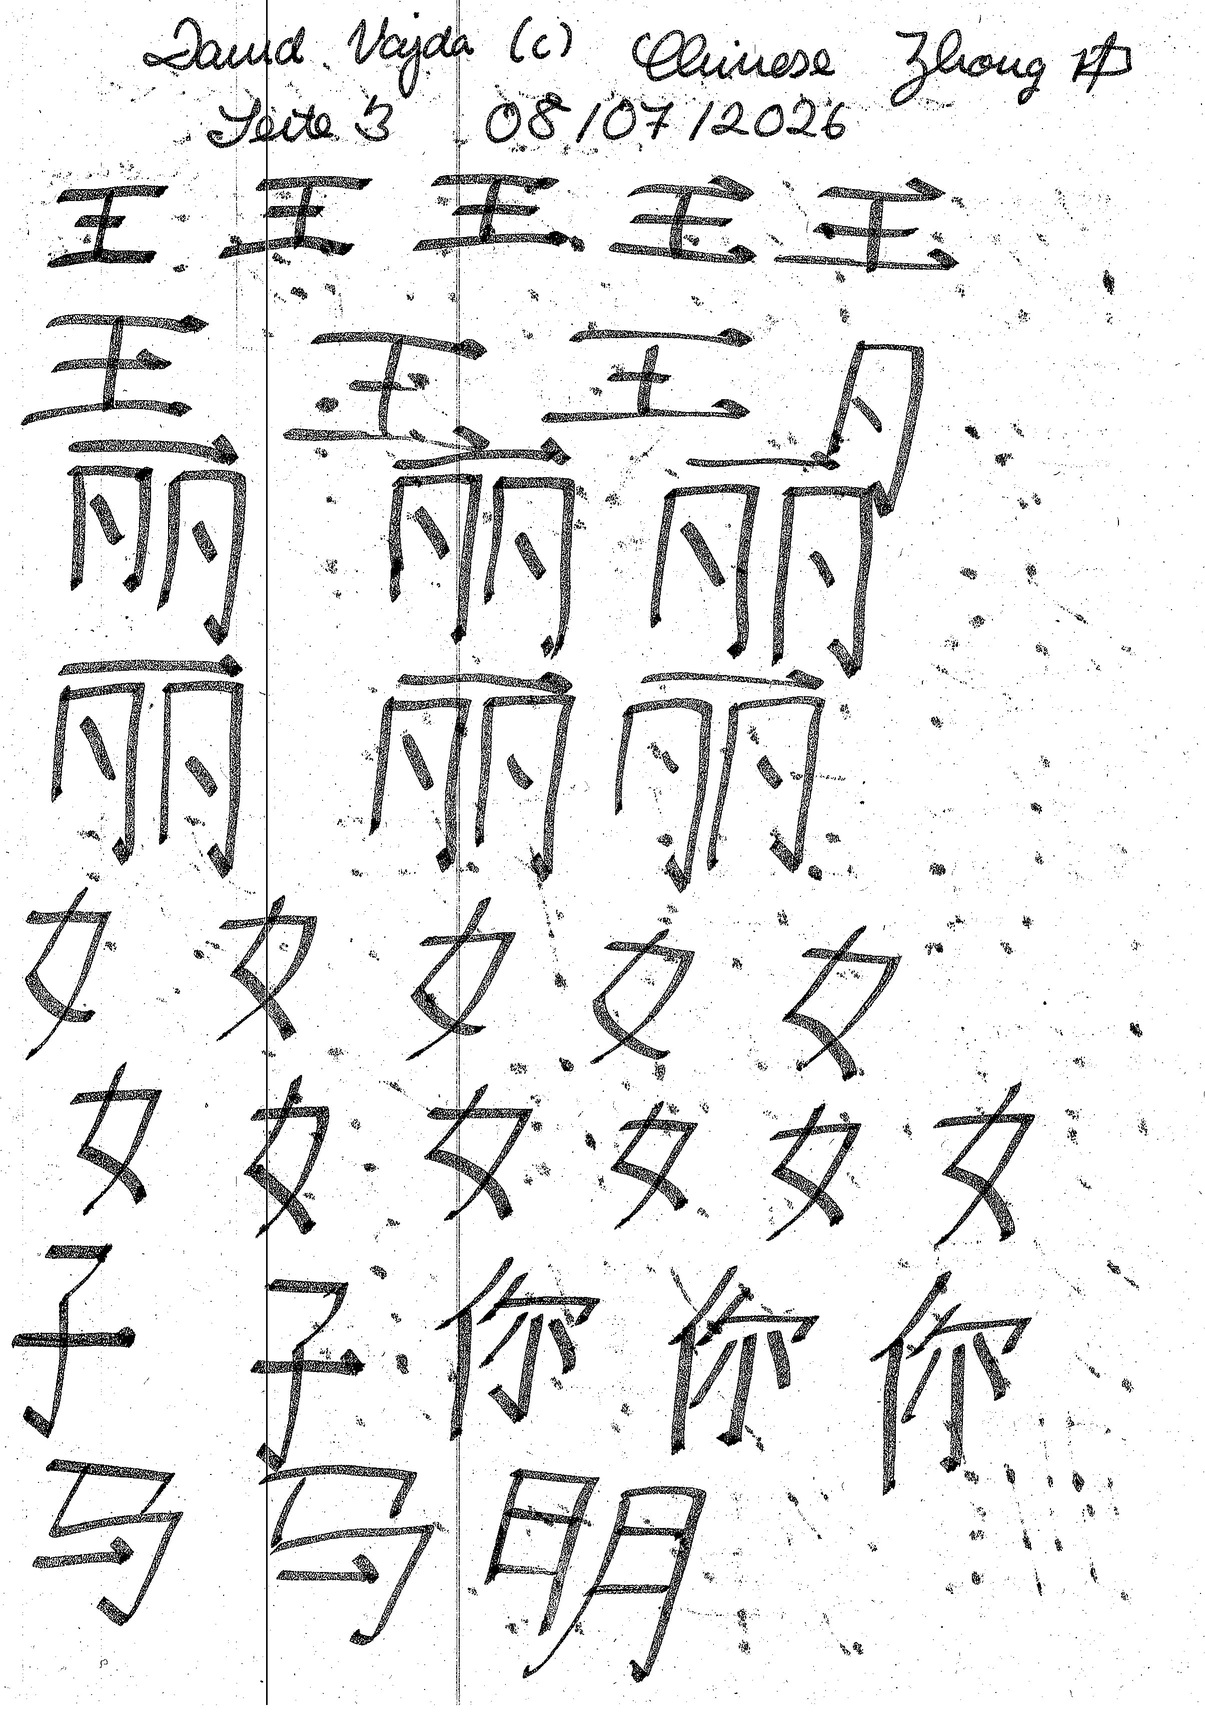 David Vajda (c) Chinese Zhong 中
Seite 3 08/07/2026
王 王 王 王 王
王 王 王
丽 丽 丽
丽 丽 丽
女 女 女 女 女
女 女 女 女 女 女
子 子 你 你 你
马 马 明